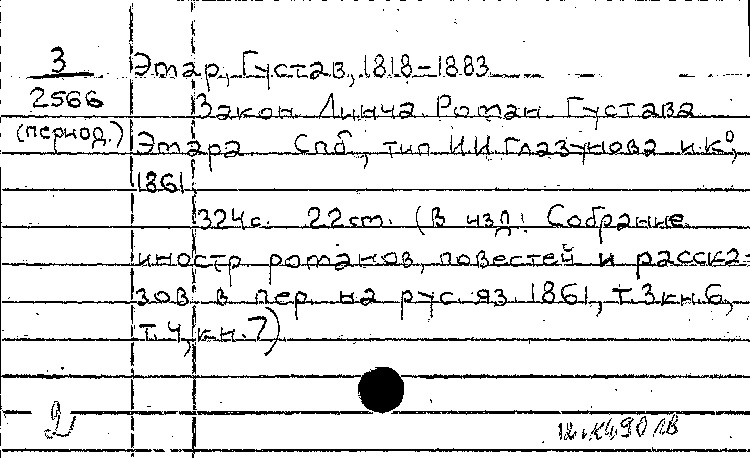 3
2566
(период.)
Этар, Густав, 1818-1883
Закон Линча. Роман Густава
Этара. Спб., тип И.И.Глазунова и К⁰,
1861.
324с. 22см. (В изд: Собрание
иностр романов, повестей и расска-
зов в пер. на рус. яз. 1861, т.3кн.6,
т.4, кн.7)
2